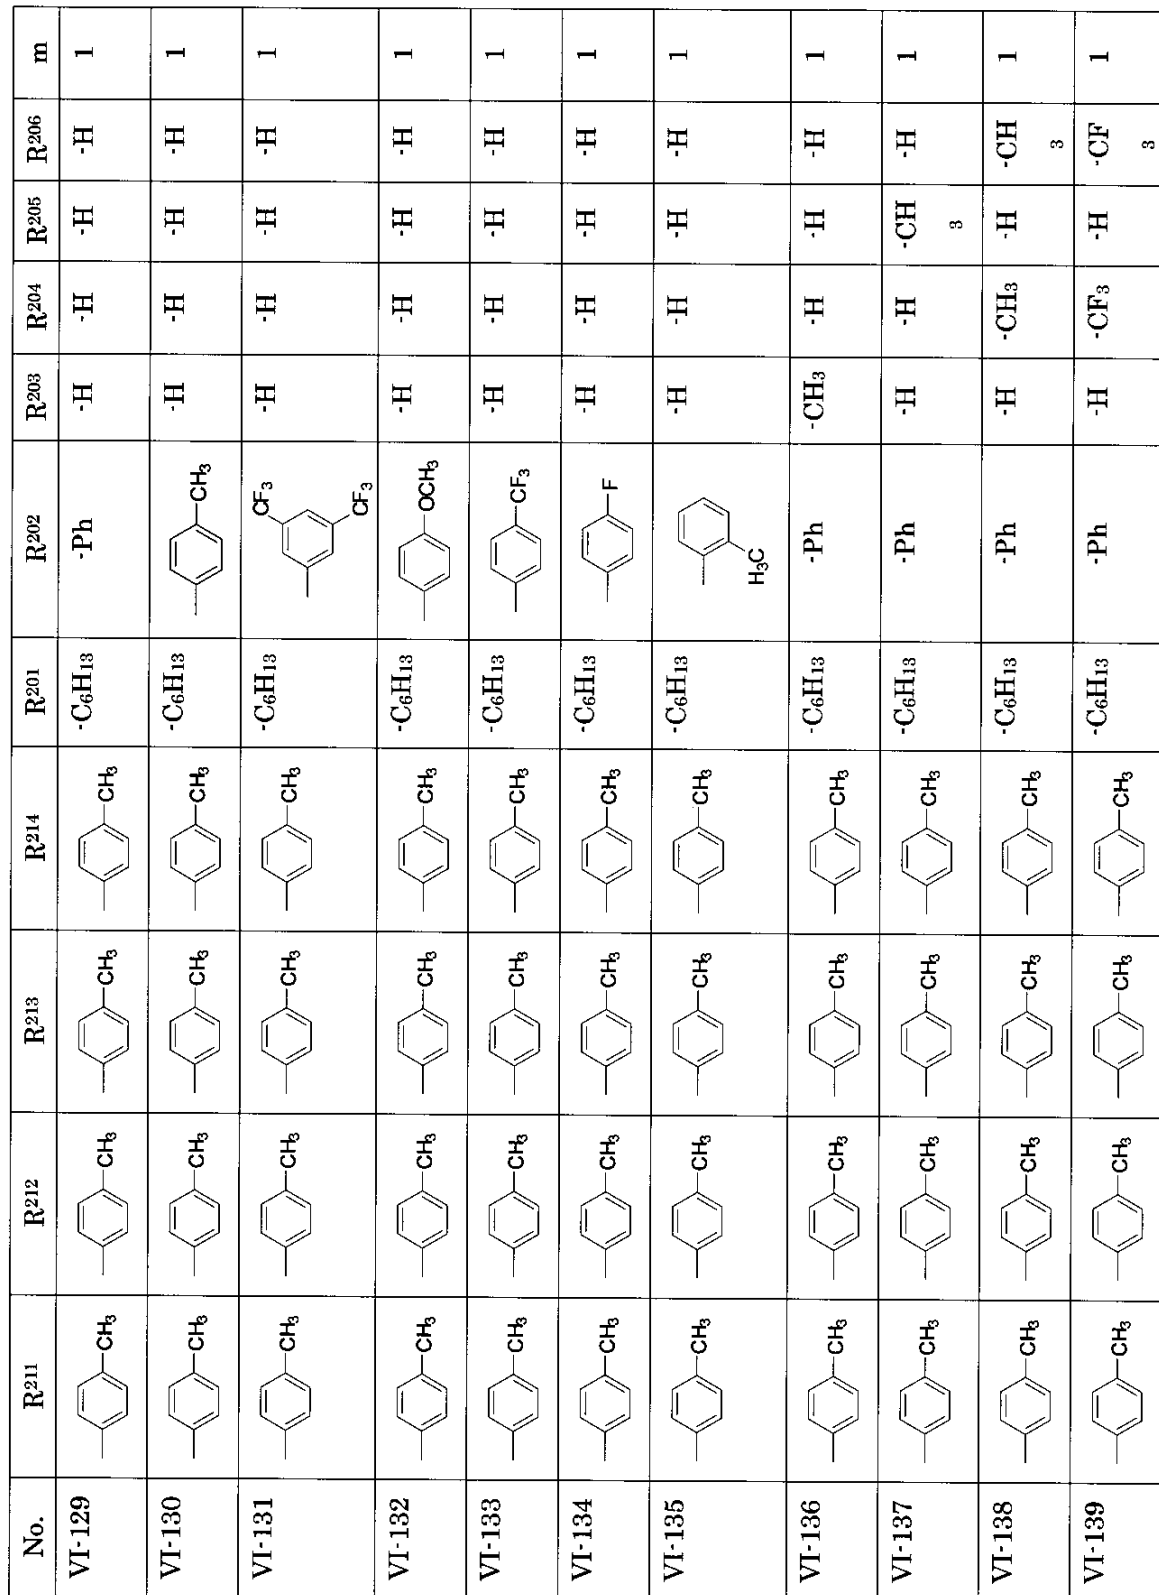 No. R211 R212 R213 R214 R201 R202 R203 R204 R205 R206 m
VI-129 CH3 CH3 CH3 CH3 -C6H13 -Ph -H -H -H -H 1
VI-130 CH3 CH3 CH3 CH3 -C6H13 CH3 -H -H -H -H 1
VI-131 CH3 CH3 CH3 CH3 -C6H13 CF3 CF3 -H -H -H -H 1
VI-132 CH3 CH3 CH3 CH3 -C6H13 OCH3 -H -H -H -H 1
VI-133 CH3 CH3 CH3 CH3 -C6H13 CF3 -H -H -H -H 1
VI-134 CH3 CH3 CH3 CH3 -C6H13 F -H -H -H -H 1
VI-135 CH3 CH3 CH3 CH3 -C6H13 H3C -H -H -H -H 1
VI-136 CH3 CH3 CH3 CH3 -C6H13 -Ph -CH3 -H -H -H 1
VI-137 CH3 CH3 CH3 CH3 -C6H13 -Ph -H -H -CH3 -H 1
VI-138 CH3 CH3 CH3 CH3 -C6H13 -Ph -H -CH3 -H -CH3 1
VI-139 CH3 CH3 CH3 CH3 -C6H13 -Ph -H -CF3 -H -CF3 1